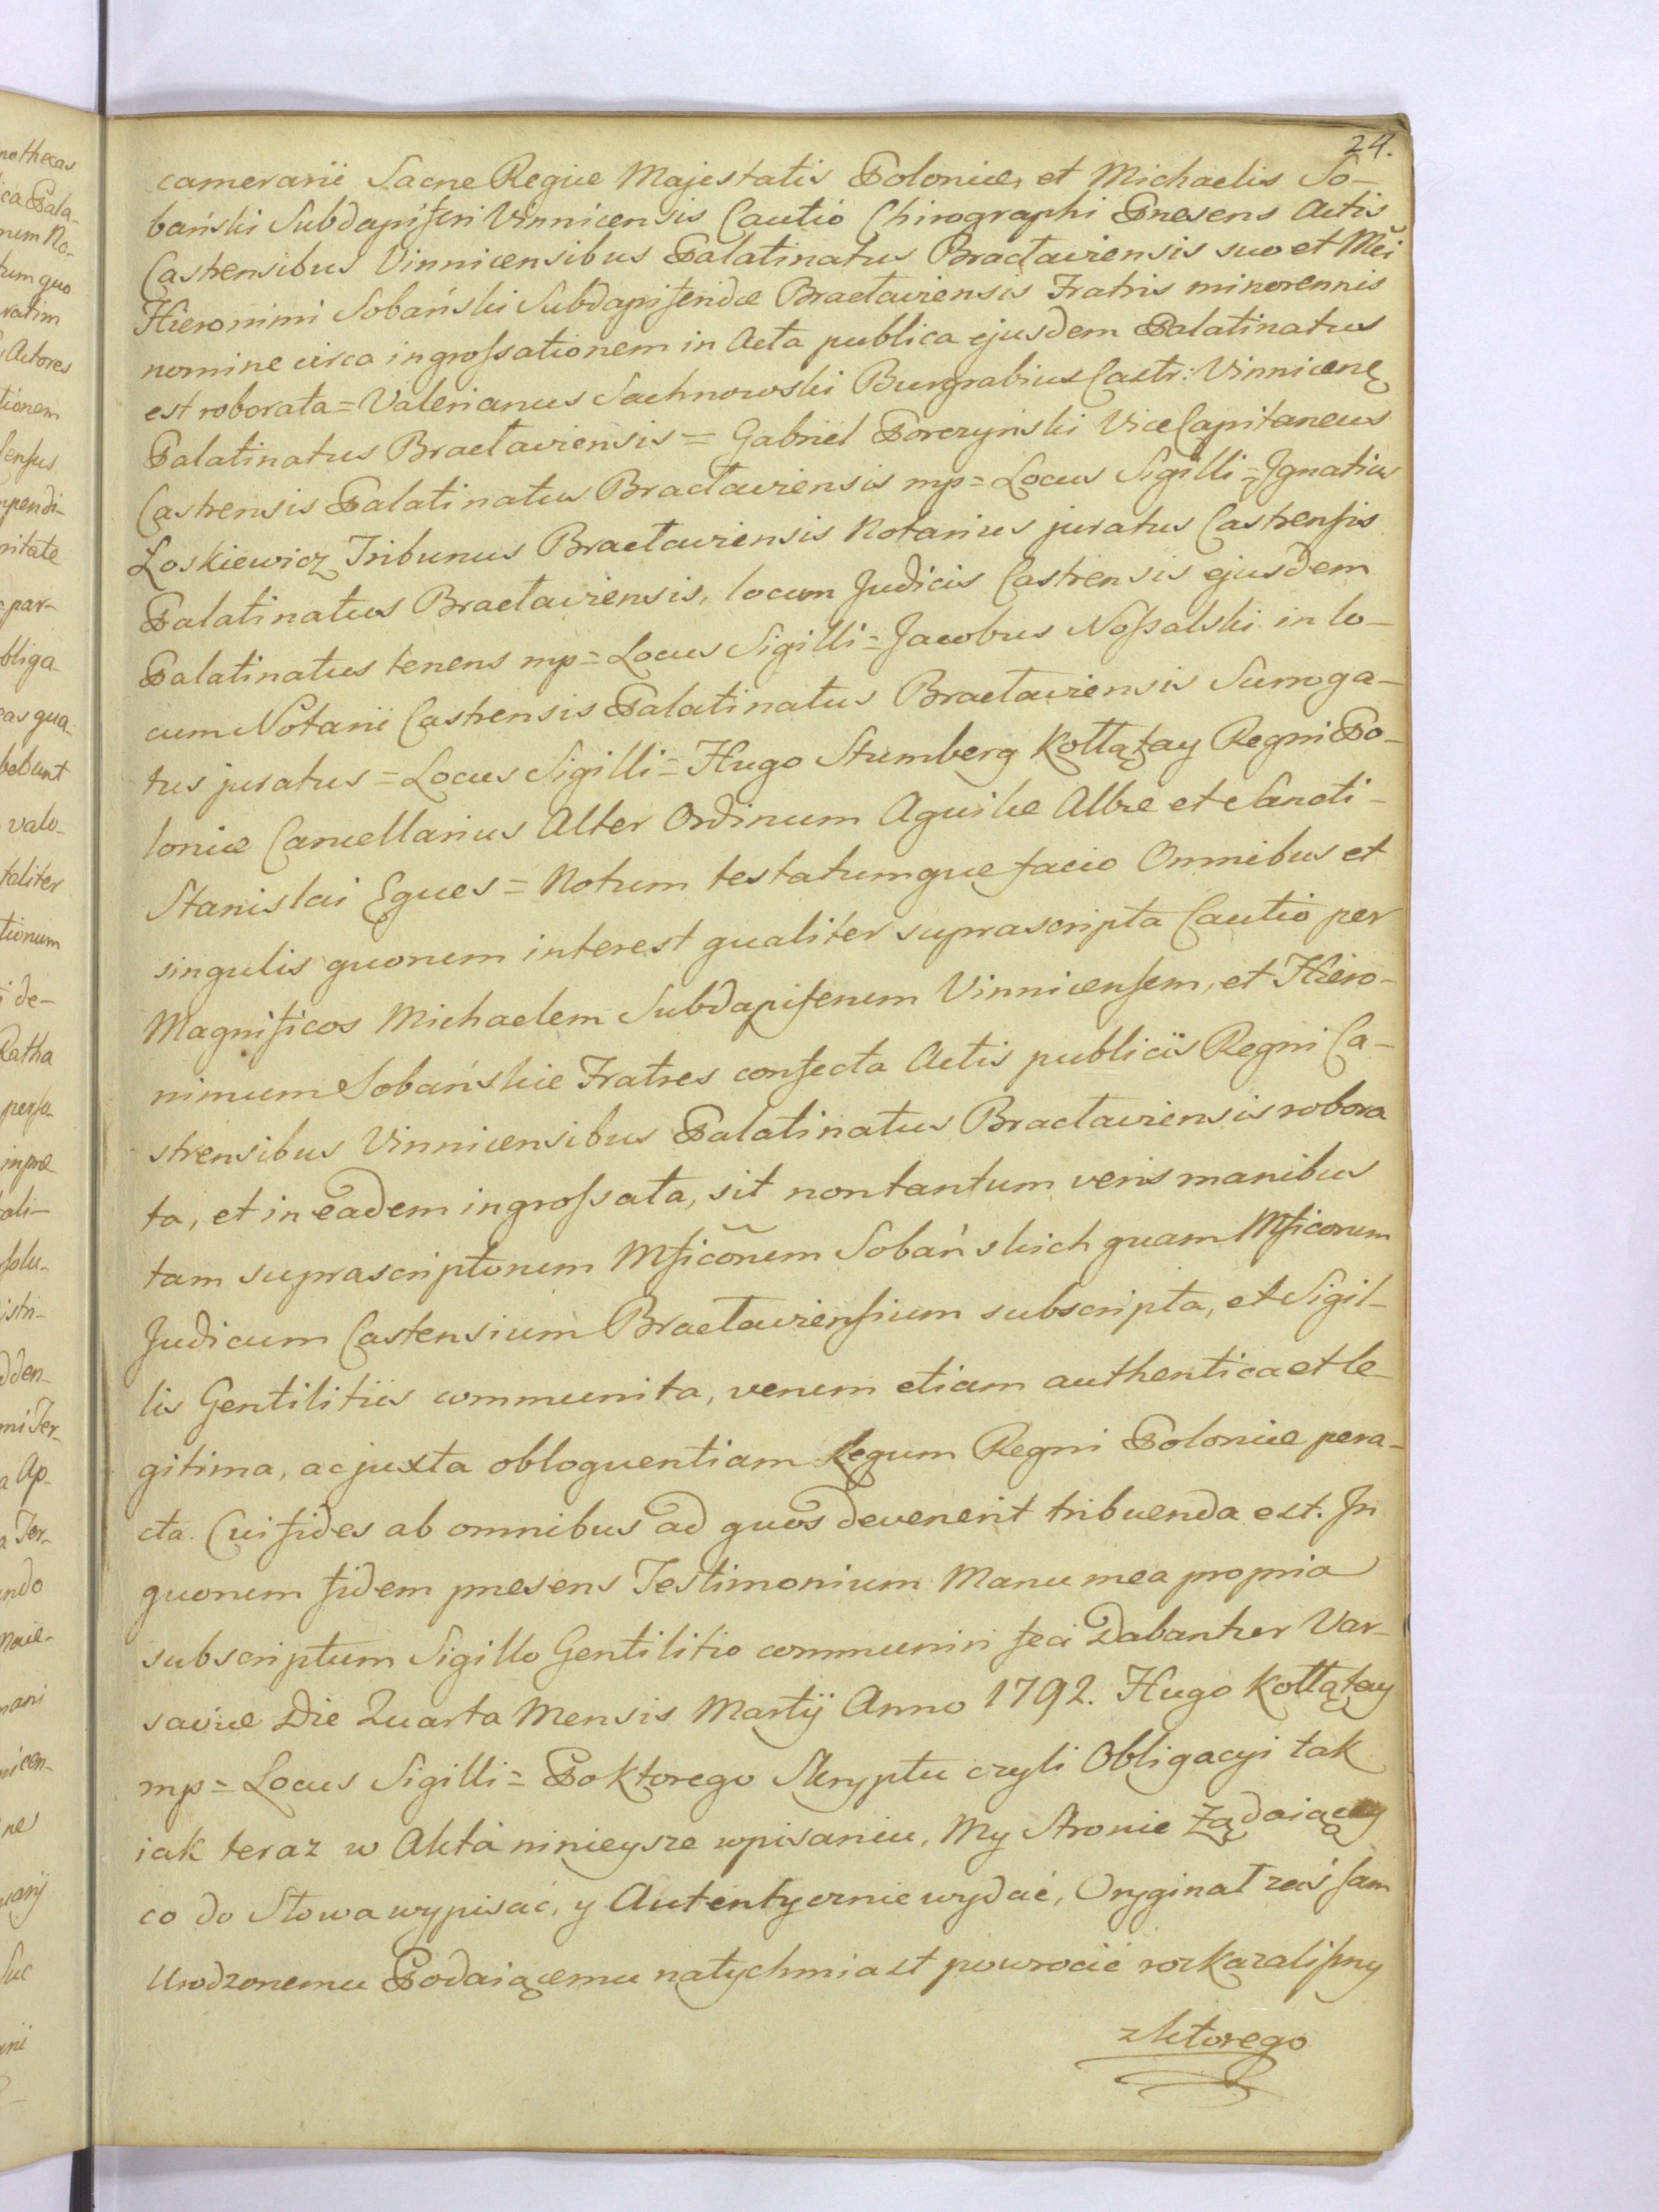 24.
camerarii Sacræ Regiæ Majestatis Poloniæ, et Michaelis So-
bański Subdapiferi Vinnicensis Cautio Chirographi Præsens Actis
Castrensibus Vinnicensibus Palatinatus Braclaviensis suo et Mĕi
Hieronimi Sobański Subdapiferidæ Braclaviensis Fratris minorennis
nomine circa ingrossationem in Acta publica ejusdem Palatinatus
est roborata = Valerianus Sachnowski Burgrabius Castr: Vinnicens
Palatinatus Braclaviensis = Gabriel Porczyński ViceCapitaneus
Castrensis Palatinatus Braclaviensis mp = Locus Sigilli = Ignatius
Loskiewicz Tribunus Braclaviensis Notarius juratus Castrensis
Palatinatus Braclaviensis, locum Judicis Castrensis ejusdem
Palatinatus tenens mp = Locus Sigilli = Jacobus Nossalski in lo-
cum Notarii Castrensis Palatinatus Braclaviensis Surroga-
tus juratus = Locus Sigilli = Hugo Stumberg Kołłątay Regni Po-
loniæ Cancellarius Alter Ordinum Aquilæ Albæ et Sancti-
Stanislai Eques = Notum testatumque facio Omnibus et
singulis quorum interest qualiter suprascripta Cautio per
Magnificos Michaelem Subdapiferum Vinnicensem, et Hiero-
nimum Sobańskie Fratres confecta Actis publicis Regni Ca-
strensibus Vinnicensibus Palatinatus Braclaviensis robora
ta, et in eadem ingrossata, sit non tantum veris manibus
tam suprascriptorum Mficõrum Sobańskich quam Mficorum
Judicum Castensium Braclaviensium subscripta, et Sigil-
lis Gentilitiis communita, verum etiam authentica et le-
gitima, ac juxta obloquentiam Legum Regni Poloniæ pera-
cta. Cui fides ab omnibus ad quos devenerit tribuenda est. In
quorum fidem præsens Testimonium Manu mea propria
subscriptum Sigillo Gentilitio communiri feci Dabantur Var-
saviæ Die Quarta Mensis Martij Anno 1792. Hugo Kołłątay
mp = Locus Sigilli = Poktorego Skryptu czyli Obligacyi tak
iak teraz w Akta ninieysze wpisaniu, My Stronie Żądaiącey
co do Słowa wypisać, y Autentycznie wydać, Oryginał zaś sam
Urodzonemu Podaiącemu natychmiast powrocić rozkazaliśmy
zktorego